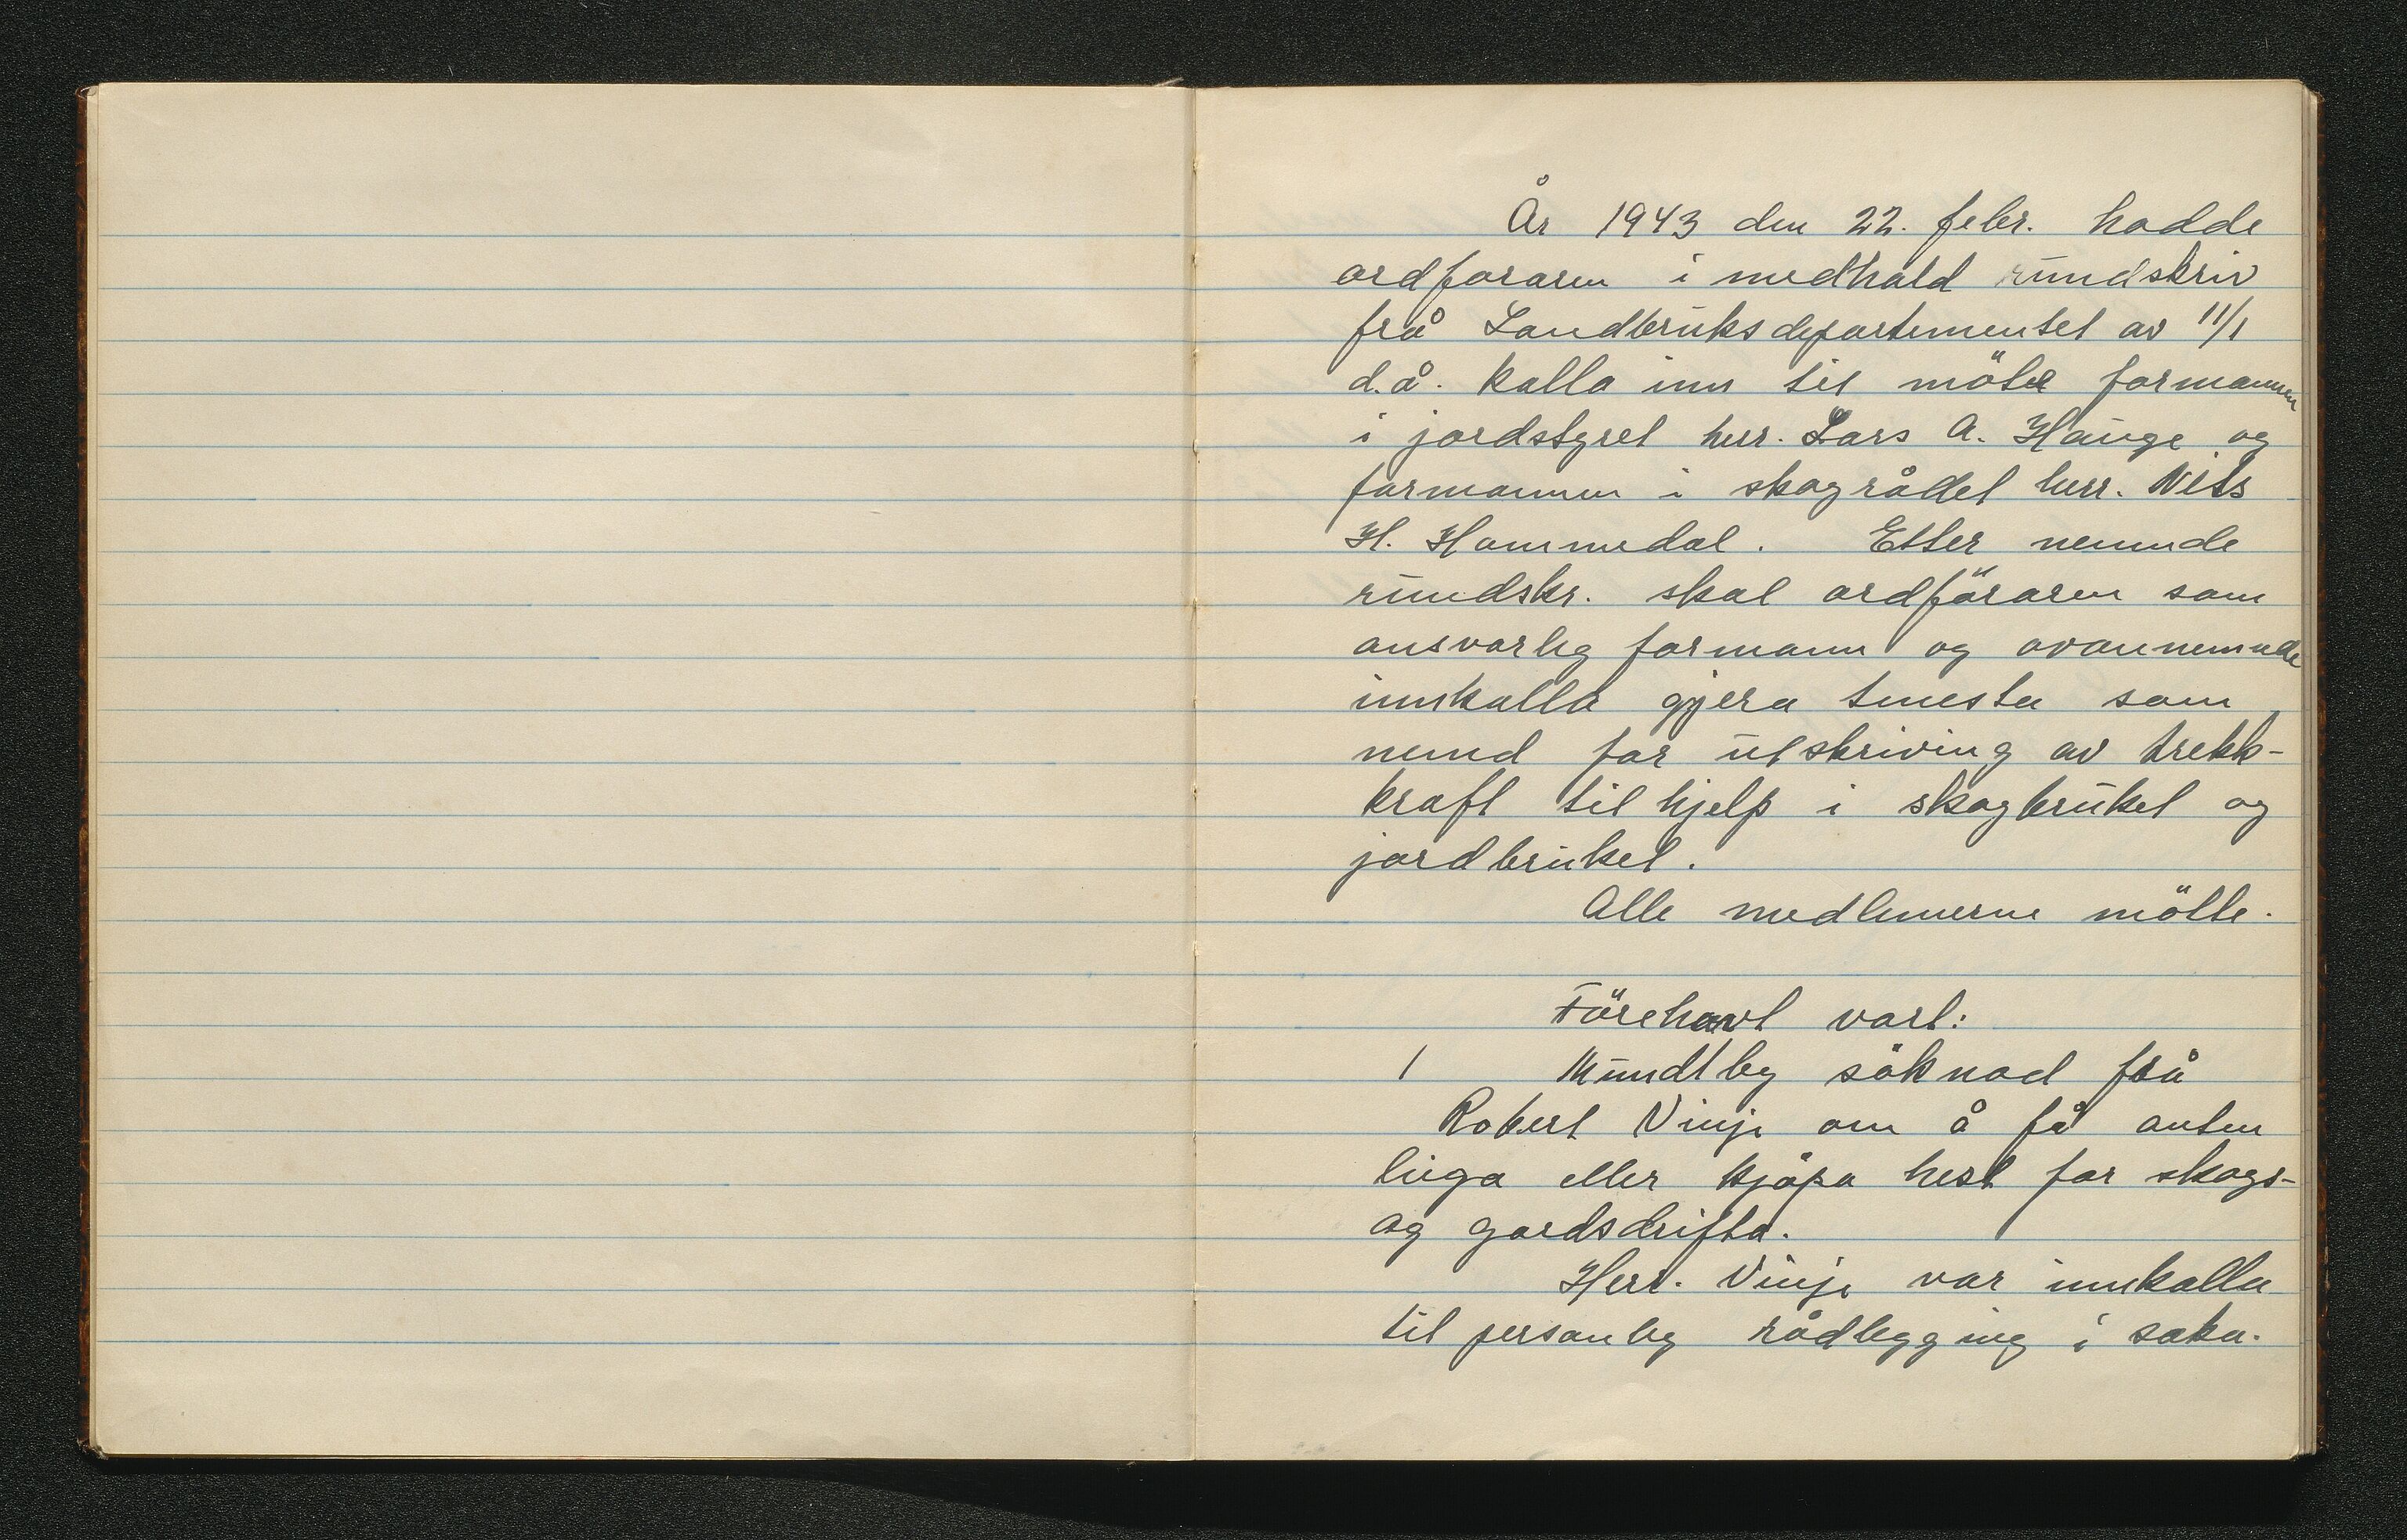 År 1943 den 22. febr. hadde
ordforaren i medhald rundskriv
frå Landbruksdepartementet av 11/1
d.å. kalla inn til möte formannen
i jordstyret herr. Lars A. Hauge og
formannen i skogrådet herr. Nils
H. Hammedal. Etter nemnde
rundskr. skal ordföraren som
ansvarleg formann og ovannemnde
innkalla gjera tenesta som
nemnd for utskriving av trekk-
kraft til hjelp i skogbruket og
jordbruket.
Alle medlemerne mötte.
Förehavt vart:
1 Mundtleg söknad frå
Robert Vinje om å få anten
leiga eller kjöpa hest for skogs-
og gardsdrifta.
Herr. Vinje var innkalla
til personleg rådlegging i saka.